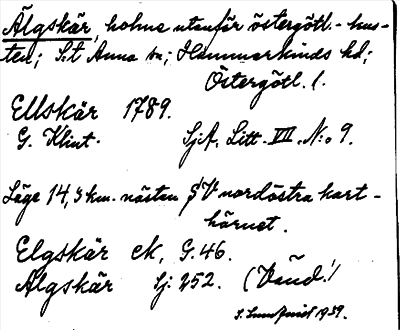 Älgskär, holme utanför östergötl.-kus-
ten; S:t Anna sn; Hammarkinds hd;
Östergötl. l.
Ellskär 1789.
G. Klint. SjA. Litt. VII. N:o 9.
Läge 14,3 km. nästan SV nordöstra kart-
hörnet.
Elgskär ek, G. 46.
Älgskär Sj: 252. (Vänd!)
S. Lundqvist 1939.